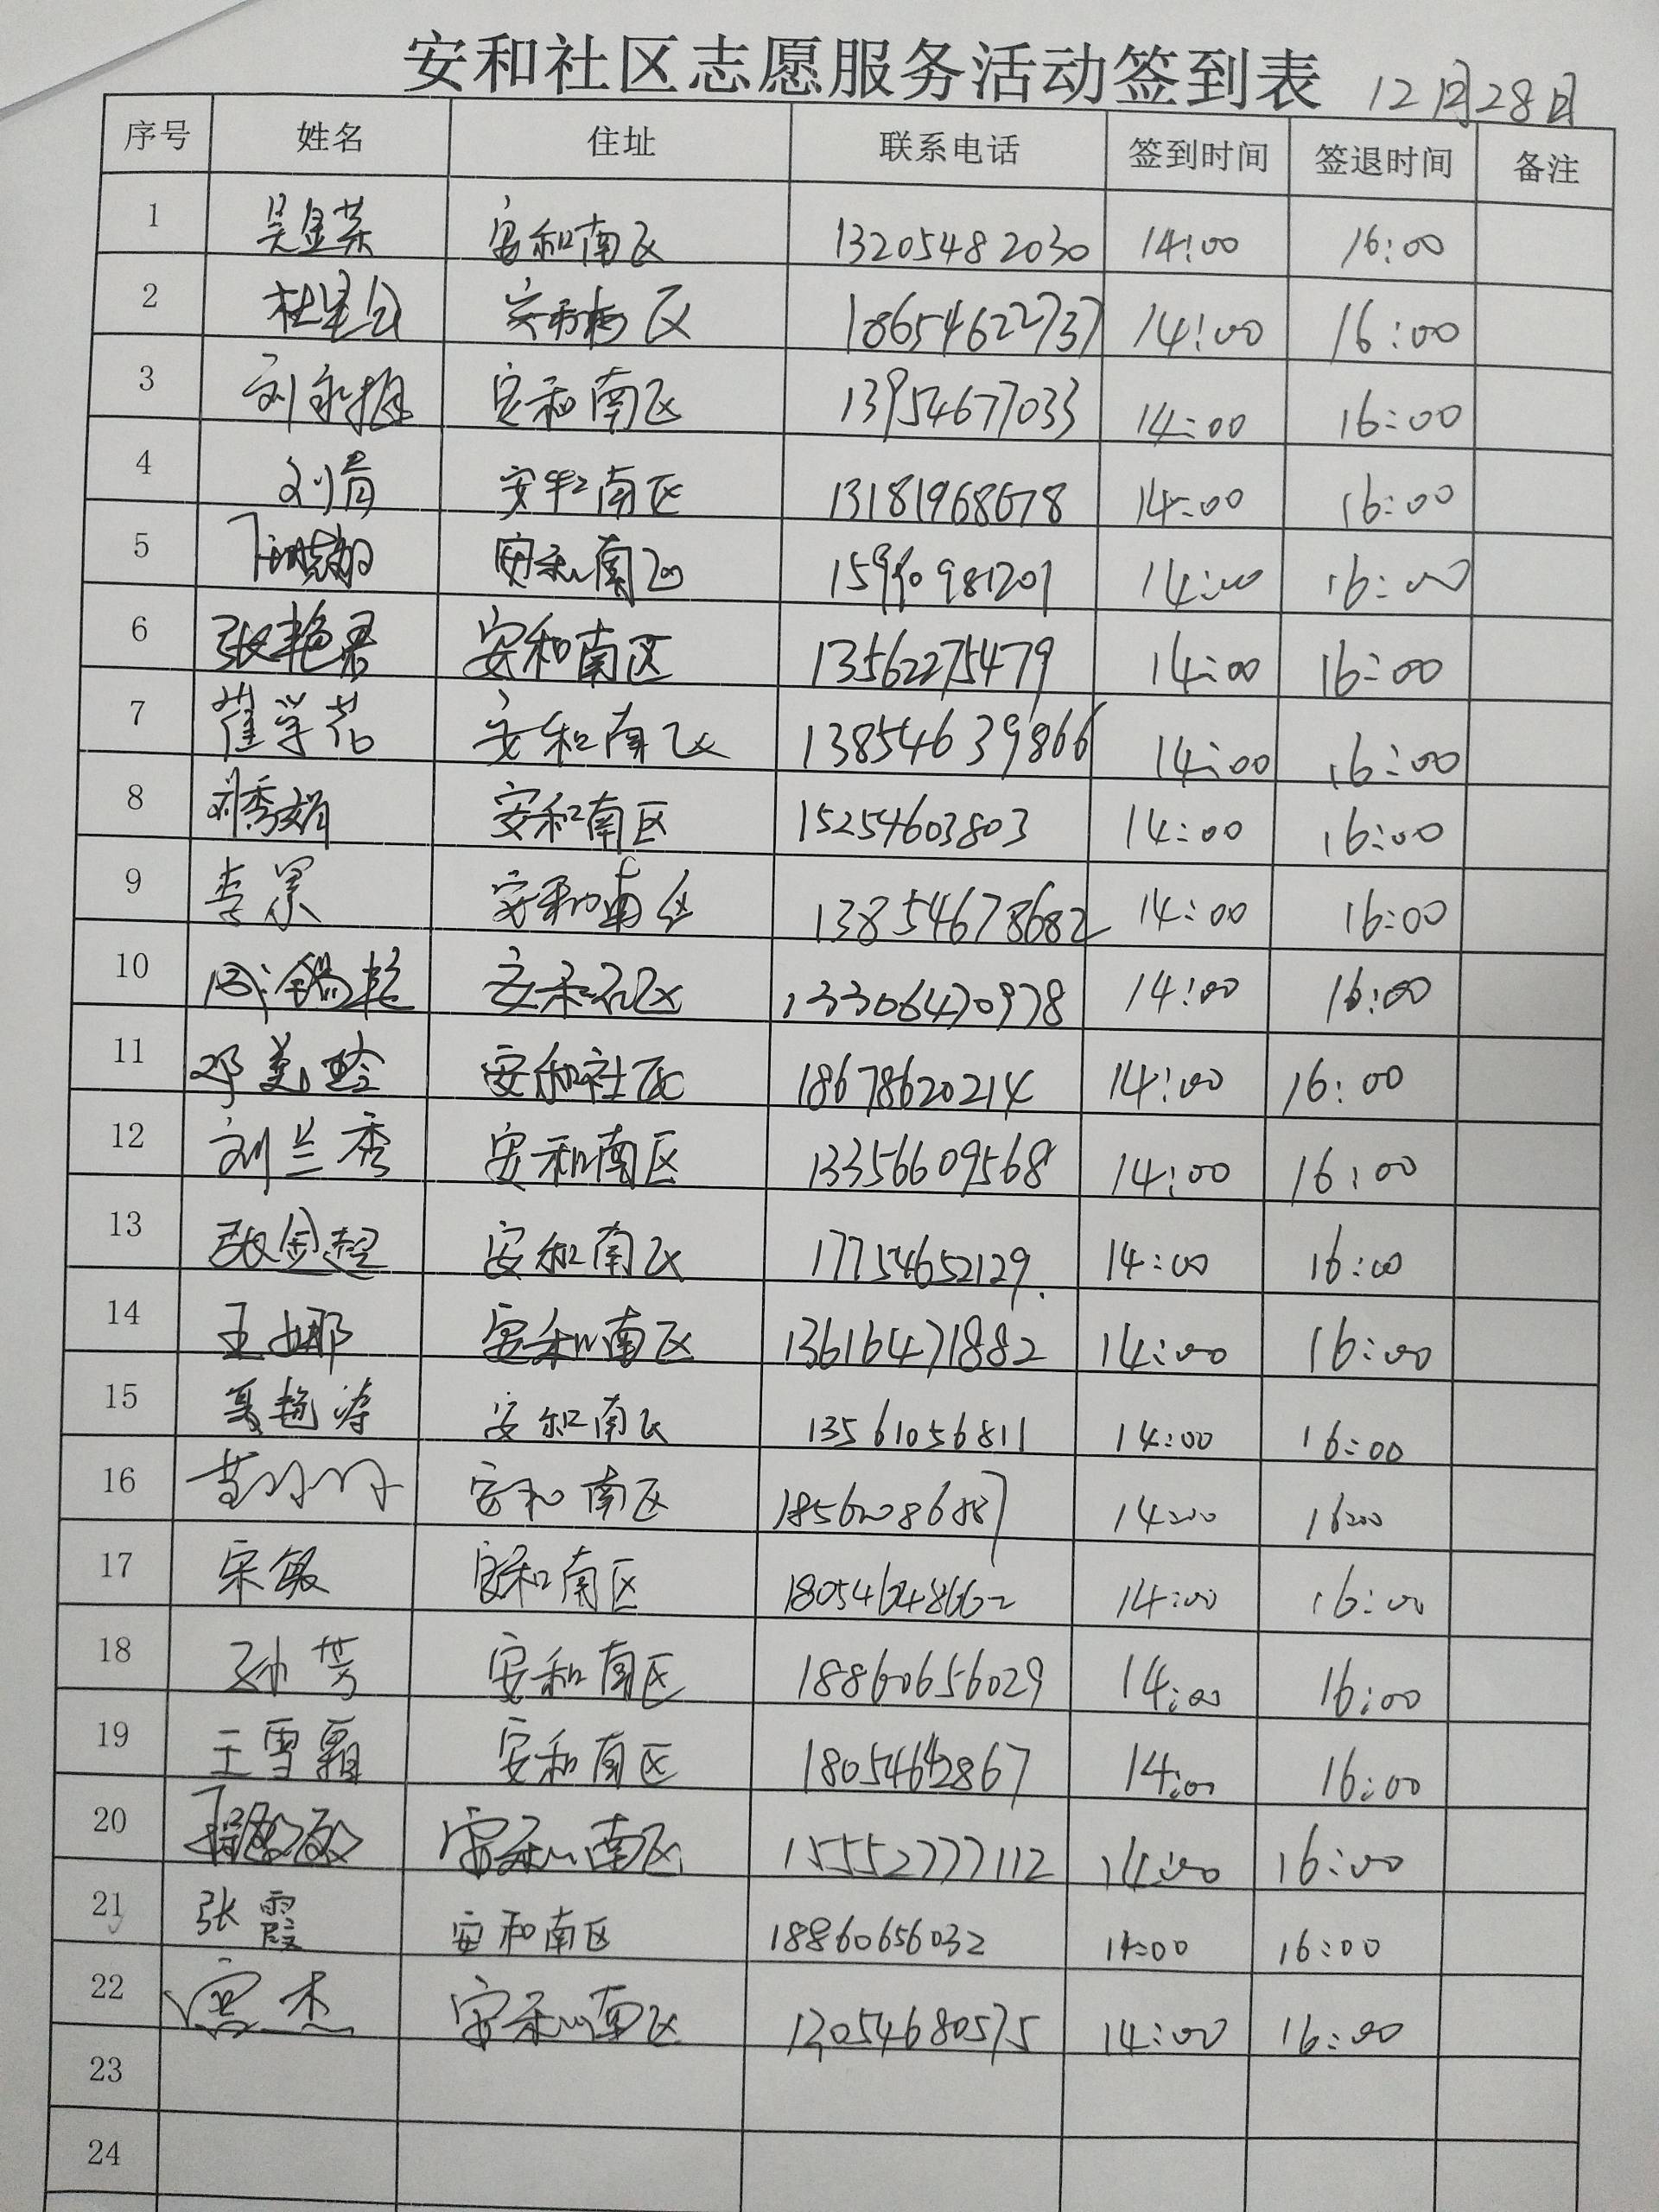 安和社区志愿服务活动签到表 12月28日
序号 姓名 住址 联系电话 签到时间 签退时间 备注
1 吴金荣 安和南区 13205482030 14:00 16:00
2 安和南区 18654622737 14:00 16:00
3 刘永振 安和南区 13954677033 14:00 16:00
4 刘青 安和南区 13181968678 14:00 16:00
5 安和南区 14:00 16:00
6 张艳君 安和南区 13562275479 14:00 16:00
7 崔学花 安和南区 13854639866 14:00 16:00
8 刘秀娟 安和南区 15254603803 14:00 16:00
9 李景 安和南区 13854678682 14:00 16:00
10 安和社区 13306470978 14:00 16:00
11 邓美玲 安和社区 18678620214 14:00 16:00
12 刘兰秀 安和南区 13356609568 14:00 16:00
13 张金超 安和南区 17754652129. 14:00 16:00
14 王娜 安和南区 13616471882 14:00 16:00
15 安和南区 13561056811 14:00 16:00
16 安和南区 14:00 16:00
17 宋敏 安和南区 14:00 16:00
18 孙芳 安和南区 18860656029 14:00 16:00
19 王雪 安和南区 14:00 16:00
20 安和南区 15552777112 14:00 16:00
21 张霞 安和南区 18860656032 14:00 16:00
22 杰 安和南区 14:00 16:00
23
24